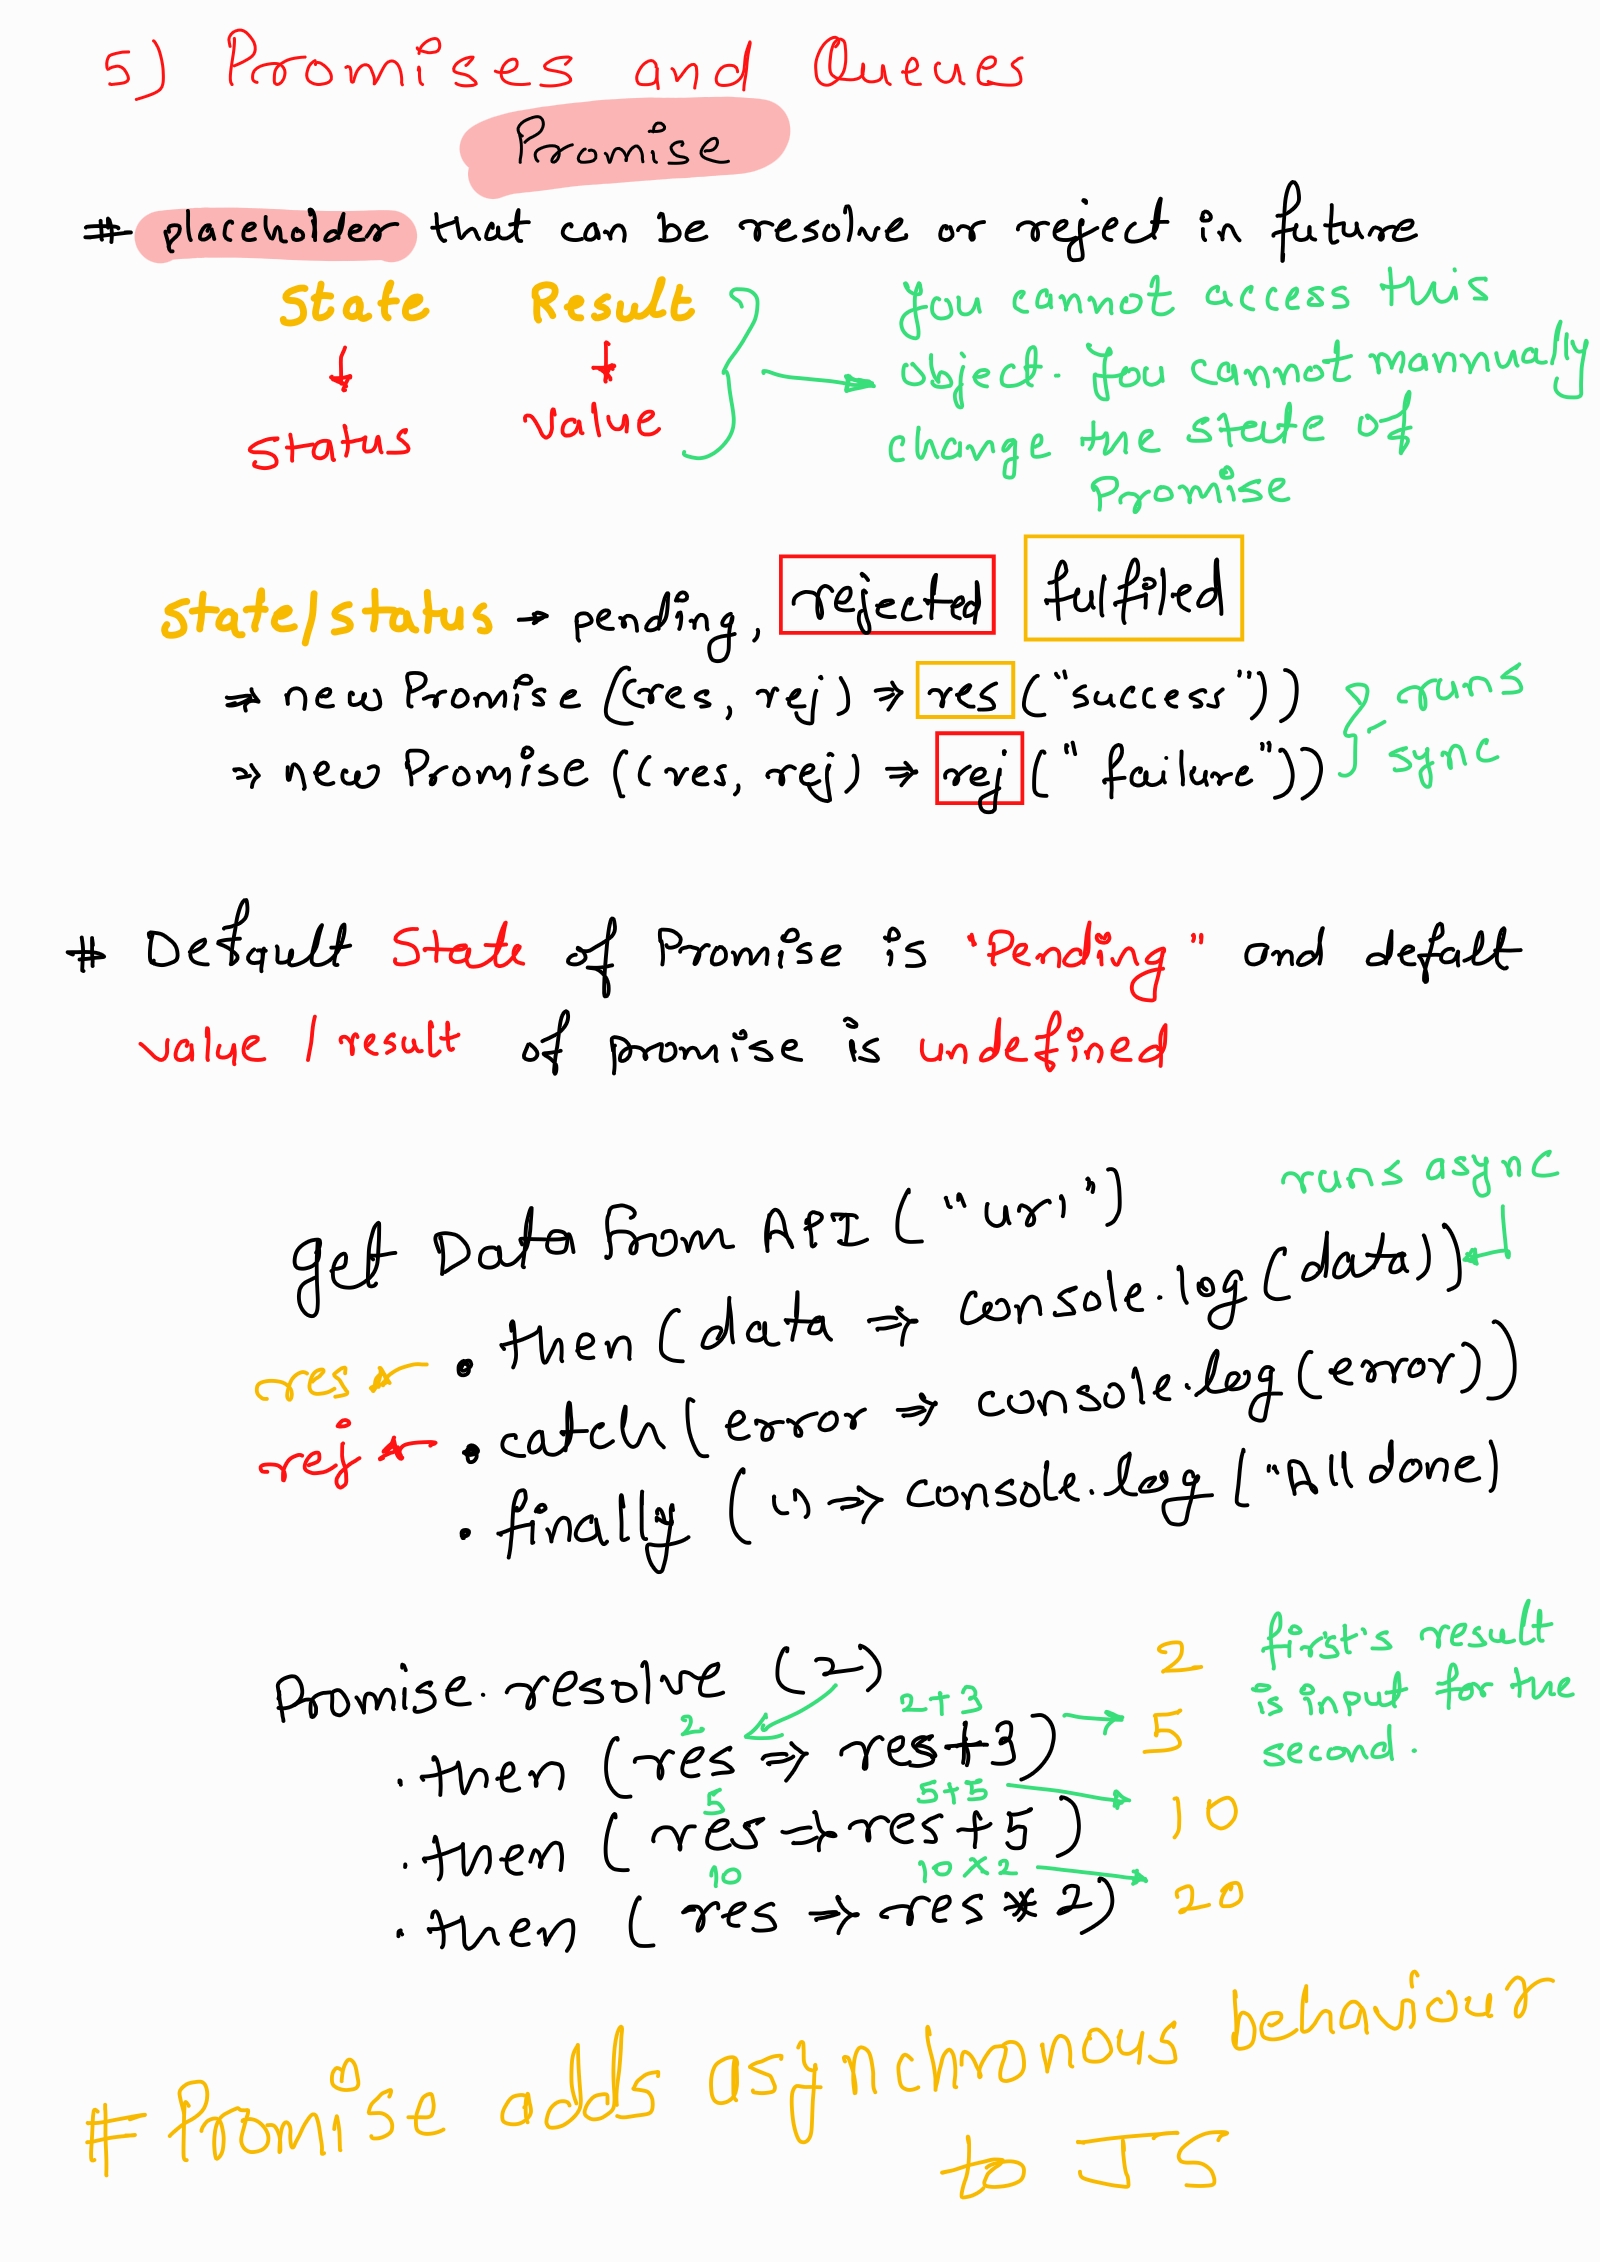 5) Promises and Queues
Promise
# placeholder that can be resolve or reject in future
State Result
You cannot access this
object. You cannot mannually
change the state of
Promise
↓ ↓
Status value
state/status → pending, rejected fulfiled
⇒ new Promise ((res, rej) ⇒ res ("success"))
⇒ new Promise ((res, rej) ⇒ rej (" failure"))
runs
sync
# Default State of Promise is "Pending" and defalt
value / result of promise is undefined
runs async
get Data From API ("url")
res ← . then (data ⇒ console.log (data))
rej ← . catch (error ⇒ console.log (error))
. finally (() ⇒ console.log ("All done)
Promise. resolve (2) 2
first's result
is input for the
second.
2 2+3
.then (res ⇒ res+3) → 5
5 5+5
.then (res ⇒ res+5) → 10
10 10×2
.then (res ⇒ res * 2) → 20
# Promise adds asynchronous behaviour
to JS